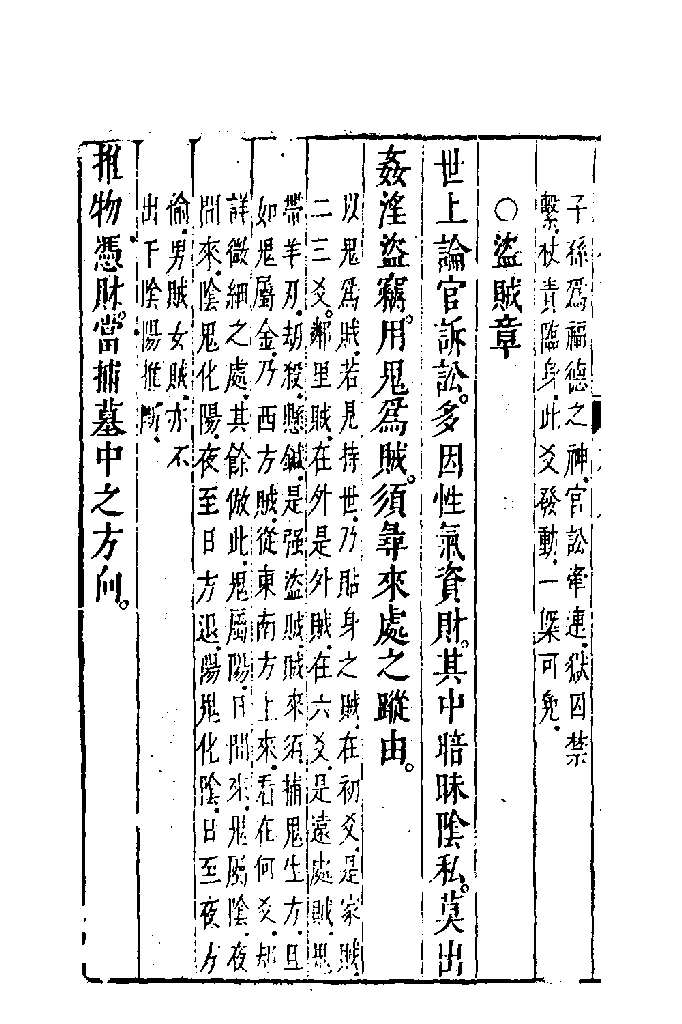 子孫爲福德之神.官訟牽連.獄囚禁
繫.杖責臨身.此爻發動.一槩可免.
○盜賊章
世上論官訴訟。多因性氣資財。其中暗昧陰私。莫出
姦淫盜竊。用鬼爲賊。須尋來處之蹤由。
以鬼爲賊.若見持世.乃貼身之賊.在初爻.是家賊.
二三爻.鄰里賊.在外是外賊.在六爻.是遠處賊.鬼
帶羊刃.劫殺.懸鍼.是强盜賊.賊來須捕鬼生方.且
如鬼屬金.乃西方賊.從東南方上來.看在何爻.却
詳微細之處.其餘倣此.鬼屬陽.日間來.鬼屬陰.夜
間來.陰鬼化陽.夜至日方退.陽鬼化陰.日至夜方
偷.男賊女賊.亦不
出下陰陽推斷.
推物憑財。當捕墓中之方向。